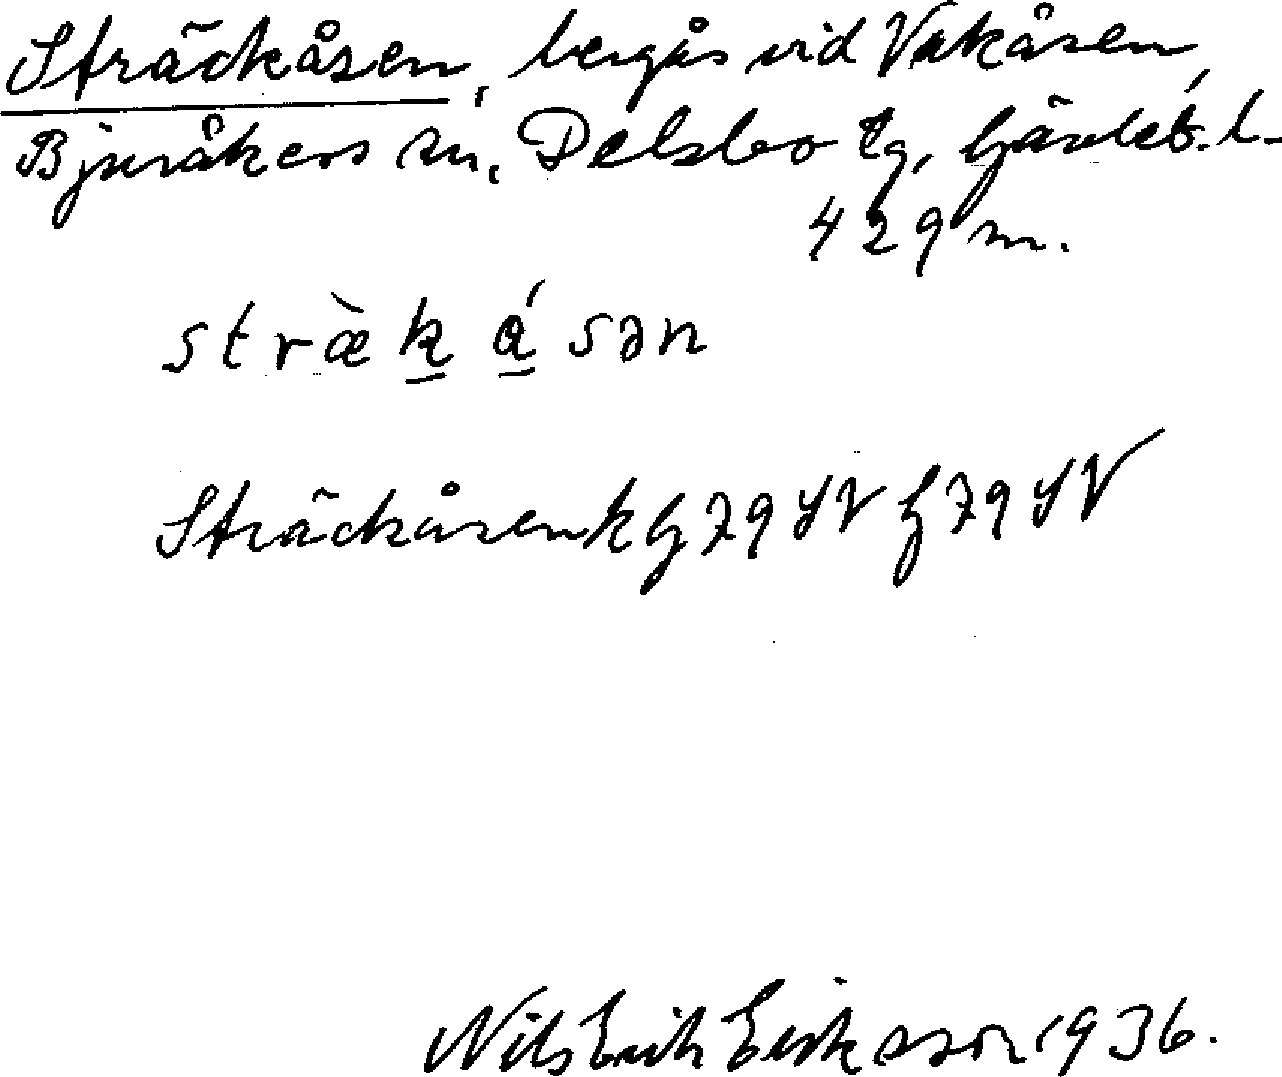 Sträckåsen, bergås vid Vakåsen,
Bjuråkers sn, Delsbo tg, Gävleb. l.
429 m.
stræ̀k ɑ́ sən
Sträckåsen k G 79 SV f 79 SV
Nils Erik Eriksson 1936.